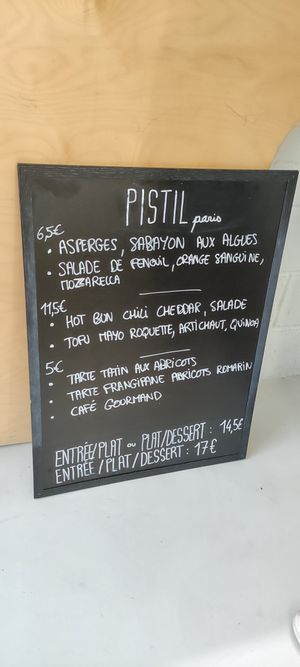 PISTIL paris
6,5€
• ASPERGES, SABAYON AUX ALGUES
• SALADE DE FENOUIL, ORANGE SANGUINE,
MOZZARELLA
11,5€
• HOT BUN CHILI CHEDDAR, SALADE
• TOFU MAYO ROQUETTE, ARTICHAUT, QUINOA
5€
• TARTE TATIN AUX ABRICOTS
• TARTE FRANGIPANE ABRICOTS ROMARIN
• CAFÉ GOURMAND
ENTRÉE/PLAT ou PLAT/DESSERT : 14,5€
ENTRÉE / PLAT / DESSERT : 17€